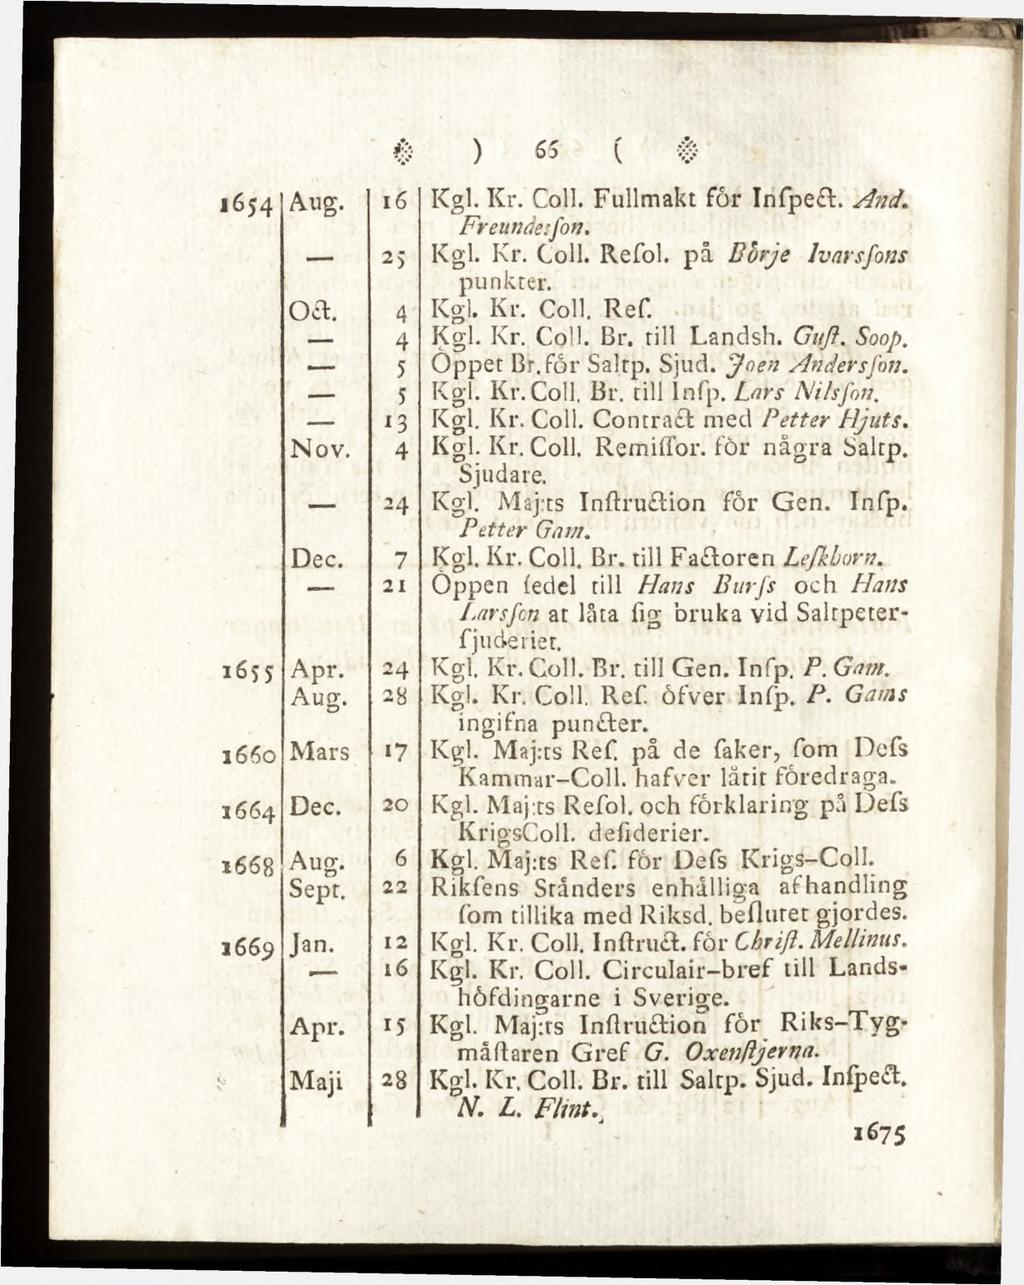 ) 66 (
1654 Aug. 16 Kgl. Kr. Coll. Fullmakt för Inſpect. And.
Freundesſon.
— 25 Kgl. Kr. Coll. Reſol. på Börje Ivarsſons
punkter.
Oct. 4 Kgl. Kr. Coll. Reſ.
— 4 Kgl. Kr. Coll. Br. till Landsh. Guſt. Soop.
— 5 Öppet Br. för Saltp. Sjud. Joen Andersſon.
— 5 Kgl. Kr. Coll. Br. till Inſp. Lars Nilsſon.
— 13 Kgl. Kr. Coll. Contract med Petter Hjuts.
Nov. 4 Kgl. Kr. Coll. Remiſſor. för några Saltp.
Sjudare.
— 24 Kgl. Maj:ts Inſtruction för Gen. Inſp.
Petter Gam.
Dec. 7 Kgl. Kr. Coll. Br. till Factoren Leſkborn.
— 21 Öppen ſedel till Hans Burſs och Hans
Larsſon at låta ſig bruka vid Saltpeter-
ſjuderiet.
1655 Apr. 24 Kgl. Kr. Coll. Br. till Gen. Inſp. P. Gam.
Aug. 28 Kgl. Kr. Coll. Reſ. öfver Inſp. P. Gams
ingifna puncter.
1660 Mars 17 Kgl. Maj:ts Reſ. på de ſaker, ſom Deſs
Kammar-Coll. hafver låtit föredraga.
1664 Dec. 20 Kgl. Maj:ts Reſol. och förklaring på Deſs
KrigsColl. deſiderier.
1668 Aug. 6 Kgl. Maj:ts Reſ. för Deſs Krigs-Coll.
Sept. 22 Rikſens Ständers enhälliga afhandling
ſom tillika med Riksd. beſlutet gjordes.
1669 Jan. 12 Kgl. Kr. Coll. Inſtruct. för Chriſt. Mellinus.
— 16 Kgl. Kr. Coll. Circulair-bref till Lands-
höfdingarne i Sverige.
Apr. 15 Kgl. Maj:ts Inſtruction för Riks-Tyg-
mäſtaren Gref G. Oxenſtjerna.
Maji 28 Kgl. Kr. Coll. Br. till Saltp. Sjud. Inſpect.
N. L. Flint.
1675